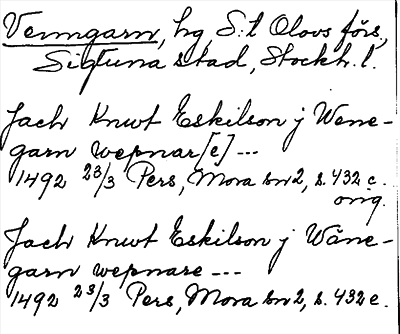 Venngarn, hg, S:t Olovs förs.,
Sigtuna stad, Stockh. l.
Jach Knwt Eskilson j Wene-
garn wepnar[e] ---
1492 23/3 Pers, Mora sn 2, s. 432 c.
orig.
Jach Knwt Eskilson j Wäne-
garn wepnare ---
1492 23/3 Pers, Mora sn 2, s. 432 e.